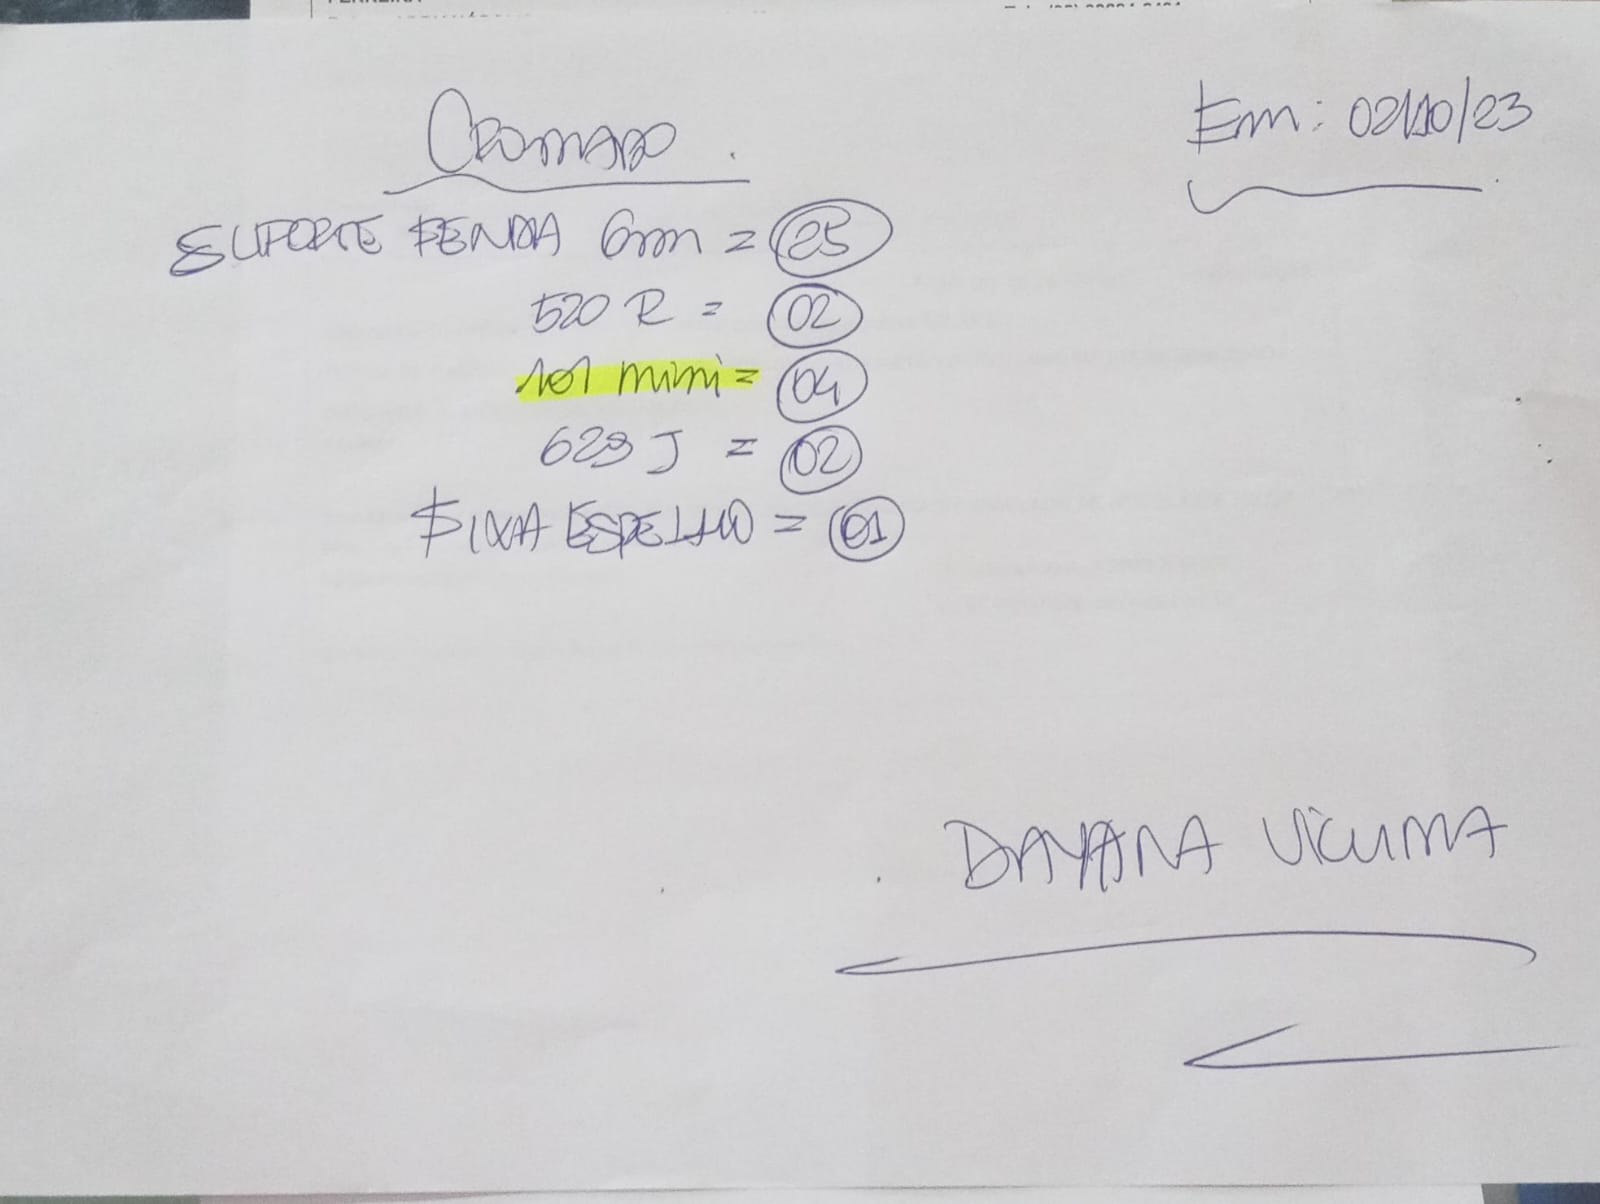 Cromado.
Em: 02/10/23
SUPORTE FENDA 6mm = 25
520 R = 02
101 mini = 04
629 J = 02
FIXA ESPELHO = 01
DAYANA VICUMA